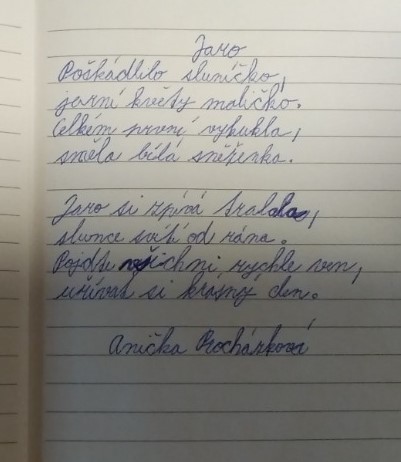 Jaro
Poškádlilo sluníčko,
jarní květy maličko.
Celkém první vykukla,
smělá bílá sněženka.
Jaro si zpívá tralala,
slunce svítí od rána.
Pojďte všichni rychle ven,
užívat si krásný den.
Anička Procházková